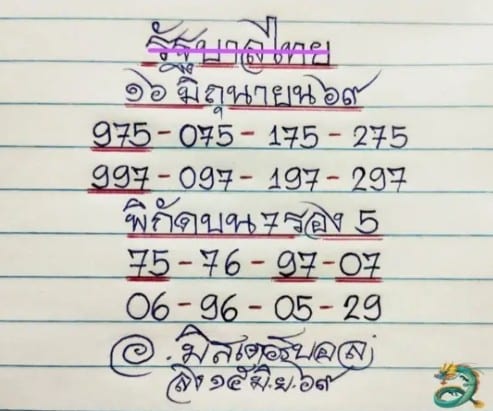 รัฐบาลไทย
๑๖ มิถุนายน ๖๙
975-075-175-275
997-097-197-297
พิกัดบน 7 รอง 5
75-76-97-07
06-96-05-29
อ. มิสเตอร์บอล
ลง ๑๕ มิ.ย. ๖๙